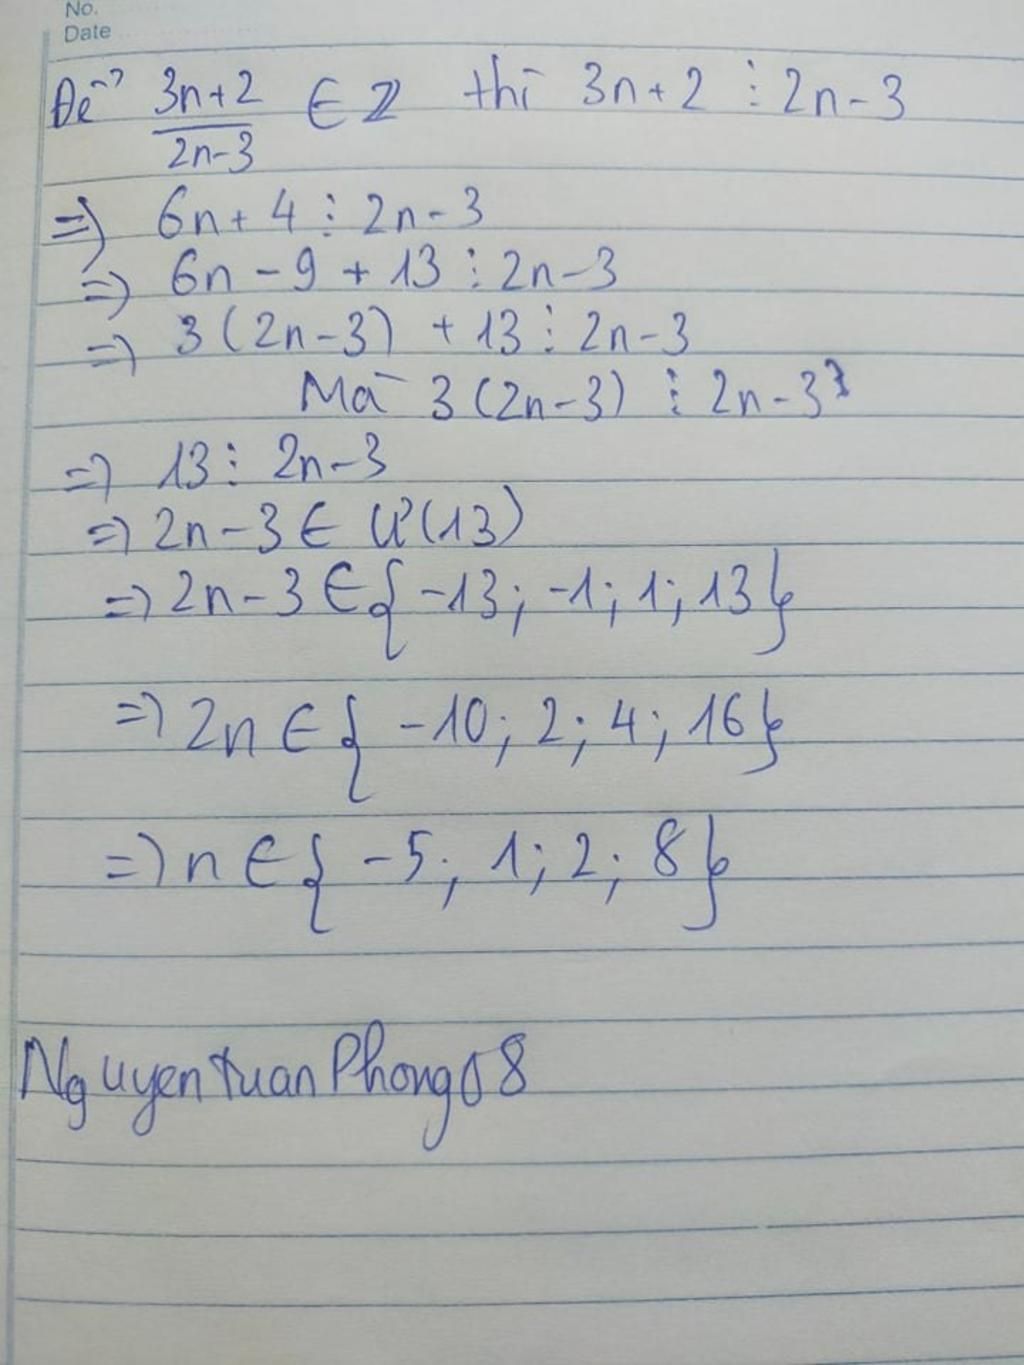 No.
Date
Để 3n+2/2n-3 ∈ Z thì 3n+2 ⋮ 2n-3
=> 6n+4 ⋮ 2n-3
=> 6n-9+13 ⋮ 2n-3
=> 3(2n-3) +13 ⋮ 2n-3
Mà 3(2n-3) ⋮ 2n-3
=> 13 ⋮ 2n-3
=> 2n-3 ∈ Ư(13)
=> 2n-3 ∈ {-13; -1; 1; 13}
=> 2n ∈ {-10; 2; 4; 16}
=> n ∈ {-5; 1; 2; 8}
NguyentuanPhong08